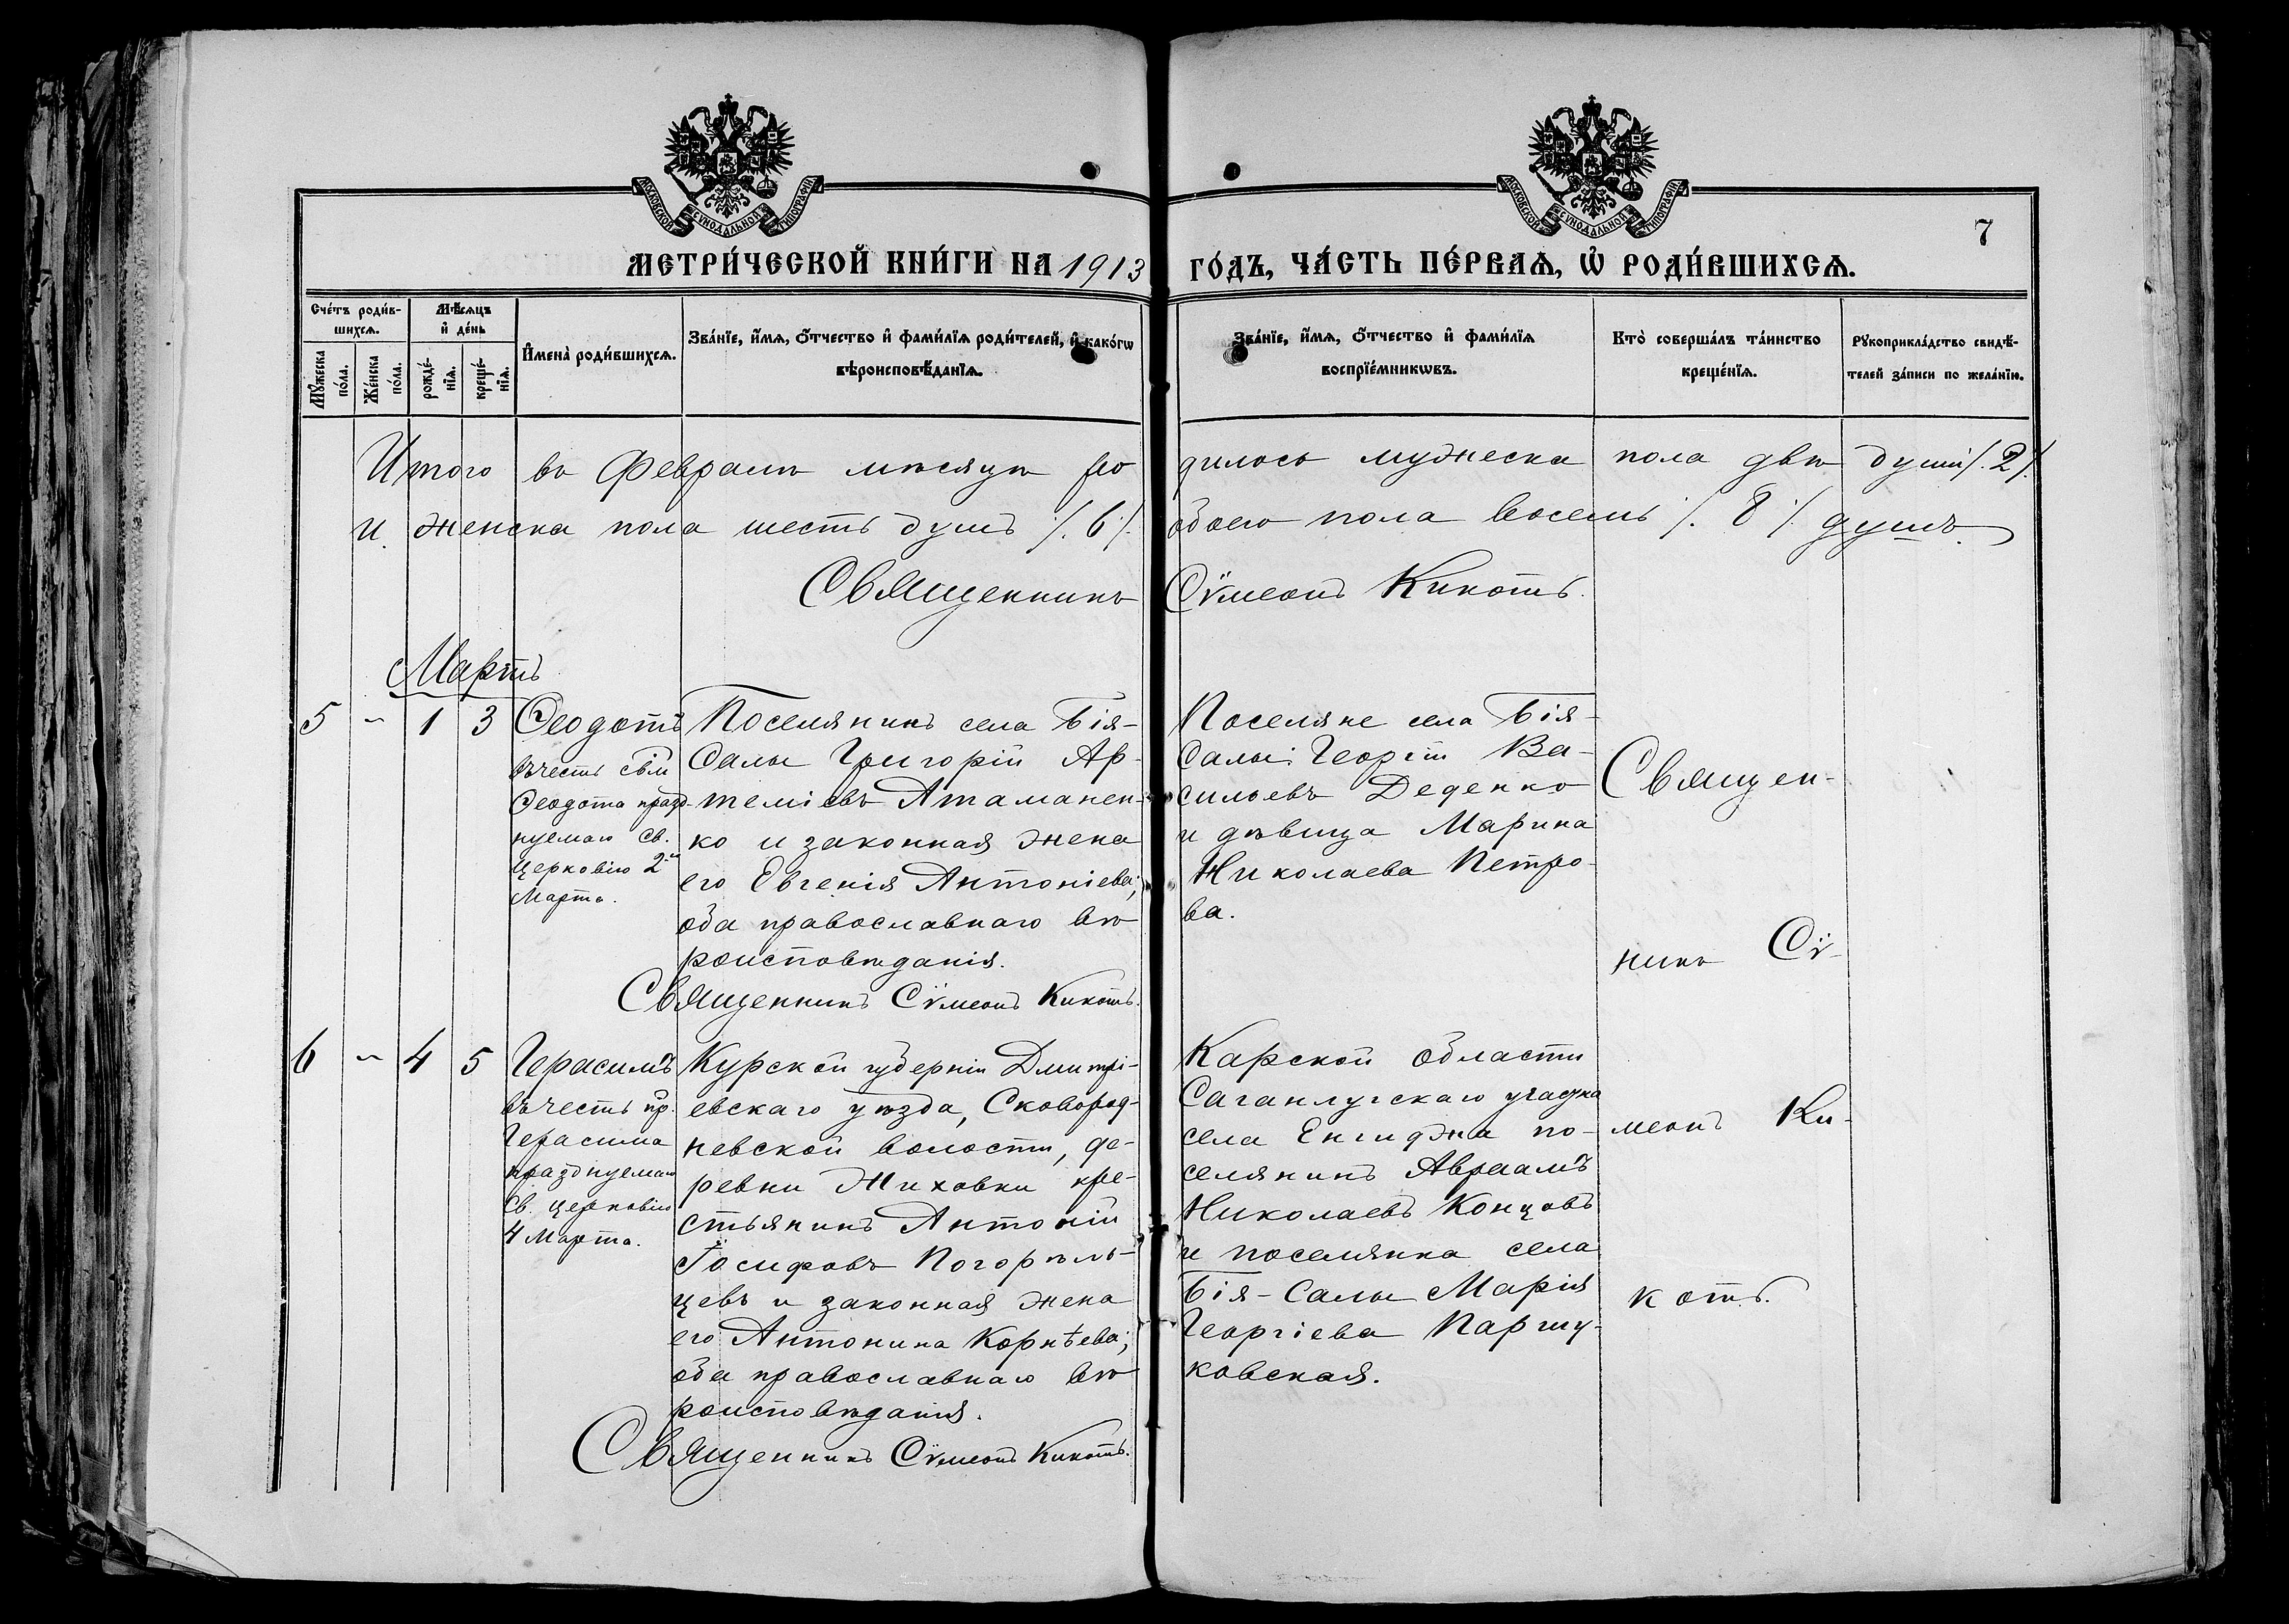 МОСКОВСКОЙ СѴНОДАЛЬНОЙ ТИПОГРАФІИ
МОСКОВСКОЙ СѴНОДАЛЬНОЙ ТИПОГРАФІИ
7
МЕТРИ́ЧЕСКОЙ КНИ́ГИ НА 1913 ГО́ДЪ, ЧА́СТЬ ПЕ́РВАѦ, Ѡ҆ РОДИ́ВШИХСѦ.
Сче́тъ роди́в-
шихсѧ.
Мѹ́жеска
по́ла.
Же́нска
по́ла.
Мѣ́сѧцъ
и҆ де́нь
рожде́-
нїѧ.
креще́-
нїѧ.
И҆мена̀ роди́вшихсѧ.
Зва́нїе, и҆́мѧ, ѻ҆́тчество и҆ фами́лїѧ роди́телей, и҆ како́гѡ
вѣроисповѣ́данїѧ.
Зва́нїе, и҆́мѧ, ѻ҆́тчество и҆ фами́лїѧ
воспрїе́мникѡвъ.
Кто̀ соверша́лъ та́инство
креще́нїѧ.
Рѹкоприкла́дство свидѣ́-
телей за́писи по жела́нїю.
Итого въ Февралѣ мѣсяцѣ родилось мужеска пола двѣ души /. 2 /.
и женска пола шесть душъ /. 6 /. обоего пола восемь /. 8 /. душъ
Священникъ Сѵмеонъ Кикоть.
Мартъ
5 - 1 3 Ѳеодотъ
въ честь свм
Ѳеодота празд-
нуемаго св.
церковію 2го
Марта.
Поселянинъ села Бія-
Салы Григорій Ар-
теміевъ Атаманен-
ко и законная жена
его Евгенія Антоніева;
оба православнаго вѣ-
роисповѣданія.
Священникъ Сѵмеонъ Кикоть.
Поселяне села Бія-
Салы: Георгій Ва-
сильевъ Деденко
и дѣвица Марина
Николаева Петро-
ва.
Священ-
никъ Сѵ-
меонъ Ки-
коть.
6 - 4 5 Герасимъ
въ честь пр.
Герасима
празднуемаго
Св. церковію
4 Марта.
Курской губерніи Дмитрі-
евскаго уѣзда, Сковород-
невской волости, де-
ревни Жиховки кре-
стьянинъ Антоній
Іосифовъ Погорѣль-
цевъ и законная жена
его Антонина Корнѣева;
оба православнаго вѣ-
роисповѣданія.
Священникъ Сѵмеонъ Кикоть.
Карской области
Саганлугскаго участка
села Енгиджа по-
селянинъ Авраамъ
Николаевъ Концовъ
и поселянка села
Бія-Салы Марія
Георгіева Паршу-
ковская.